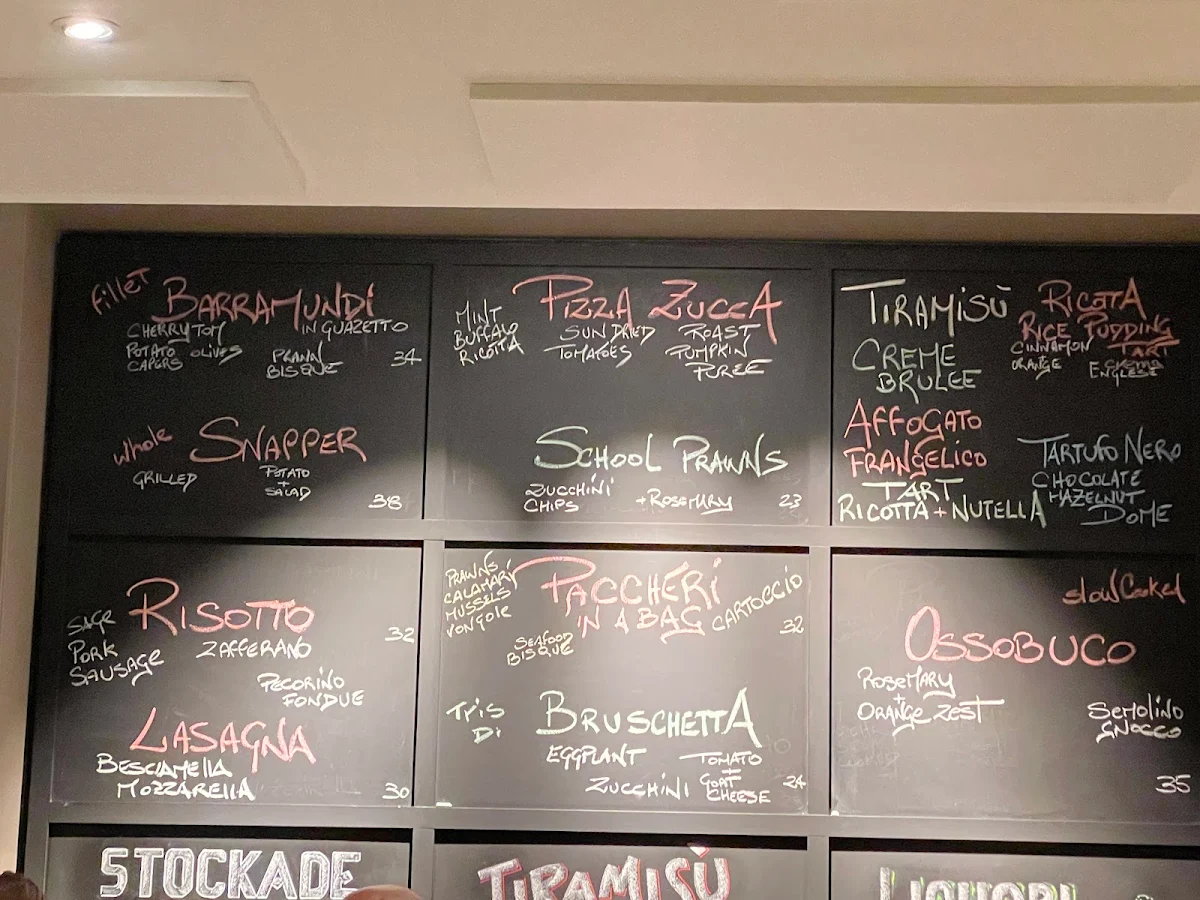 fillet
BARRAMUNDI
CHERRY TOM IN GUAZETTO
POTATO OLIVES PRAWN
CAPERS BISQUE 34
whole SNAPPER
GRILLED POTATO
+
SALAD
38
MINT PIZZA ZUCCA
BUFFALO SUN DRIED ROAST
RICOTTA TOMATOES PUMPKIN
PUREE
SCHOOL PRAWNS
ZUCCHINI
CHIPS +ROSEMARY 23
TIRAMISÙ
CREME
BRULEE
RICOTTA
RICE PUDDING
TART
CINNAMON
ORANGE
ENGLESE
AFFOGATO
FRANGELICO
TART
RICOTTA + NUTELLA
TARTUFO NERO
CHOCOLATE
HAZELNUT
DOME
RISOTTO
SAGE ZAFFERANO 32
PORK
SAUSAGE
PECORINO
FONDUE
LASAGNA
BESCIAMELLA
MOZZARELLA 30
PRAWNS
CALAMARI
MUSSELS
VONGOLE
PACCHERI
IN A BAG CARTOCCIO
SEAFOOD
BISQUE 32
TRIS
DI
BRUSCHETTA
EGGPLANT TOMATO
+
ZUCCHINI GOAT
CHEESE 24
slow Cooked
OSSOBUCO
ROSEMARY
+
ORANGE ZEST
SEMOLINO
GNOCCO
35
STOCKADE
TIRAMISÙ
LIQUORI